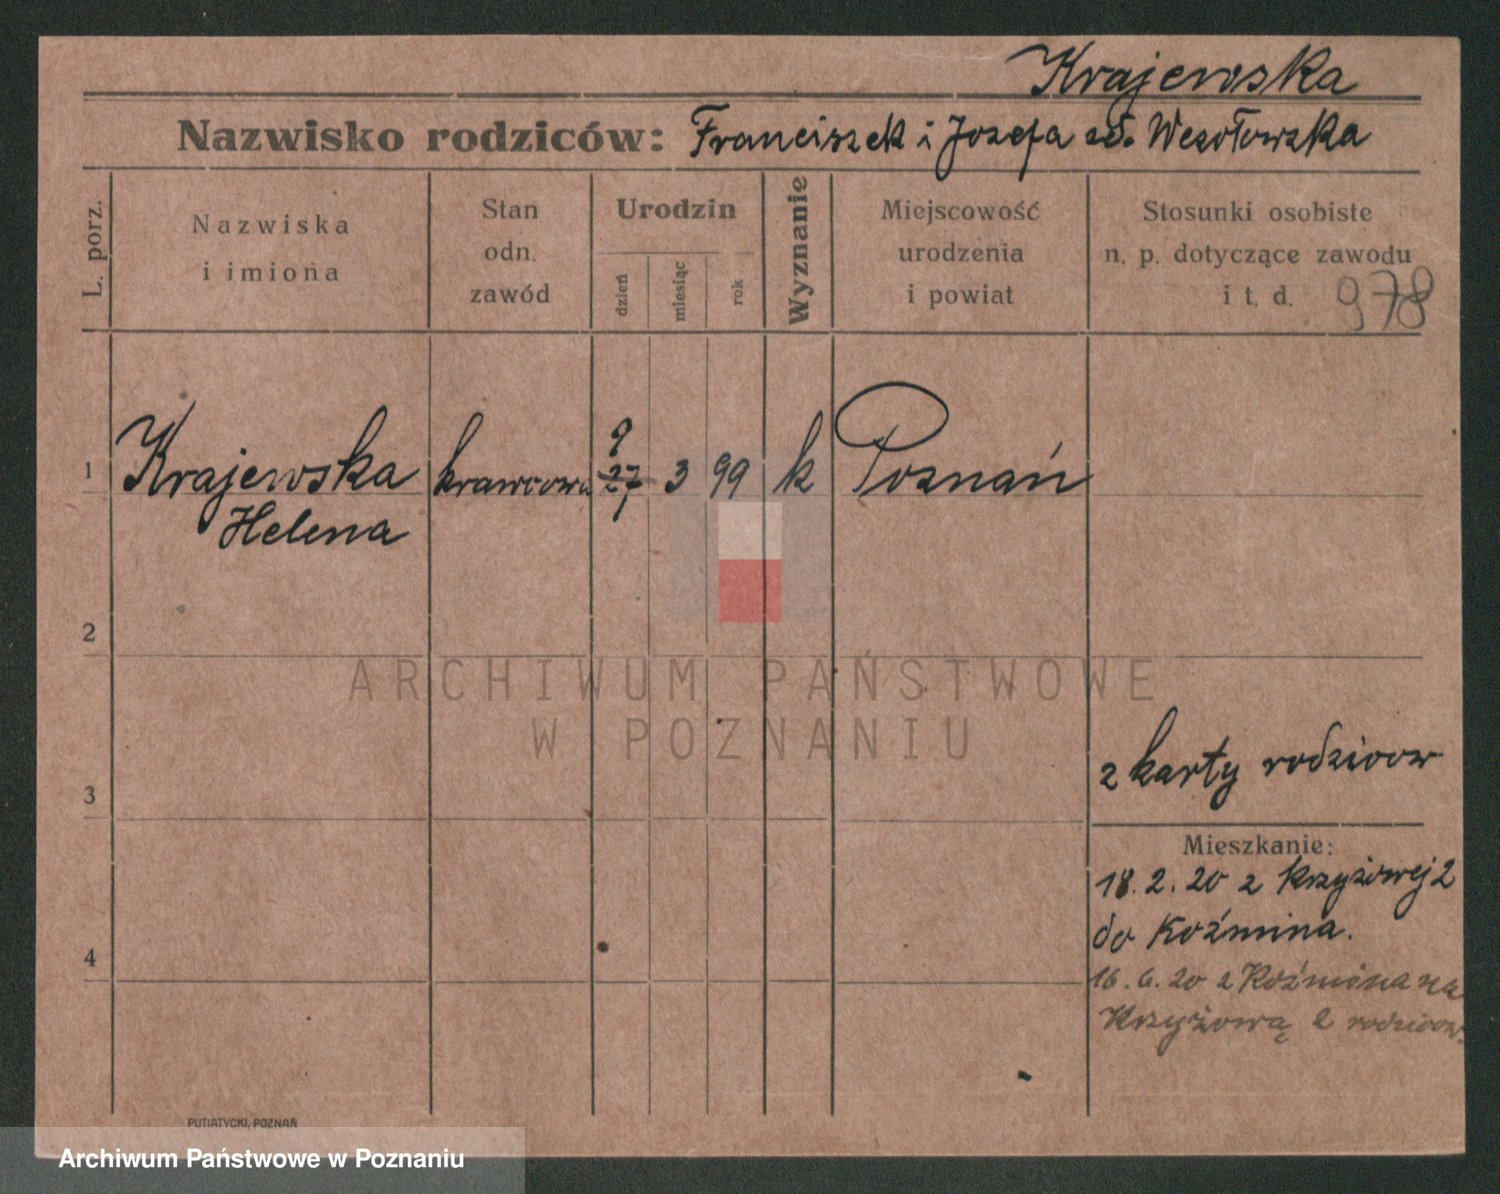 Krajewska
Nazwisko rodziców: Franciszek i Jozefa zd. Wesołowska
L. porz.
Nazwiska
i imiona
Stan
odn.
zawód
Urodzin
dzień
miesiąc
rok
Wyznanie
Miejscowość
urodzenia
i powiat
Stosunki osobiste
n. p. dotyczące zawodu
i t. d. 978
9
1 Krajewska krawcowa 27 3 99 k Poznań
Helena
2
ARCHIWUM PAŃSTWOWE
W POZNANIU
z karty rodzicow
3
Mieszkanie:
18. 2. 20 z Krzyżowej 2
do Koźmina.
4
16. 6. 20 z Koźmina na
Krzyżową 2 rodzicow.
PUTIATYCKI, POZNAŃ
Archiwum Państwowe w Poznaniu